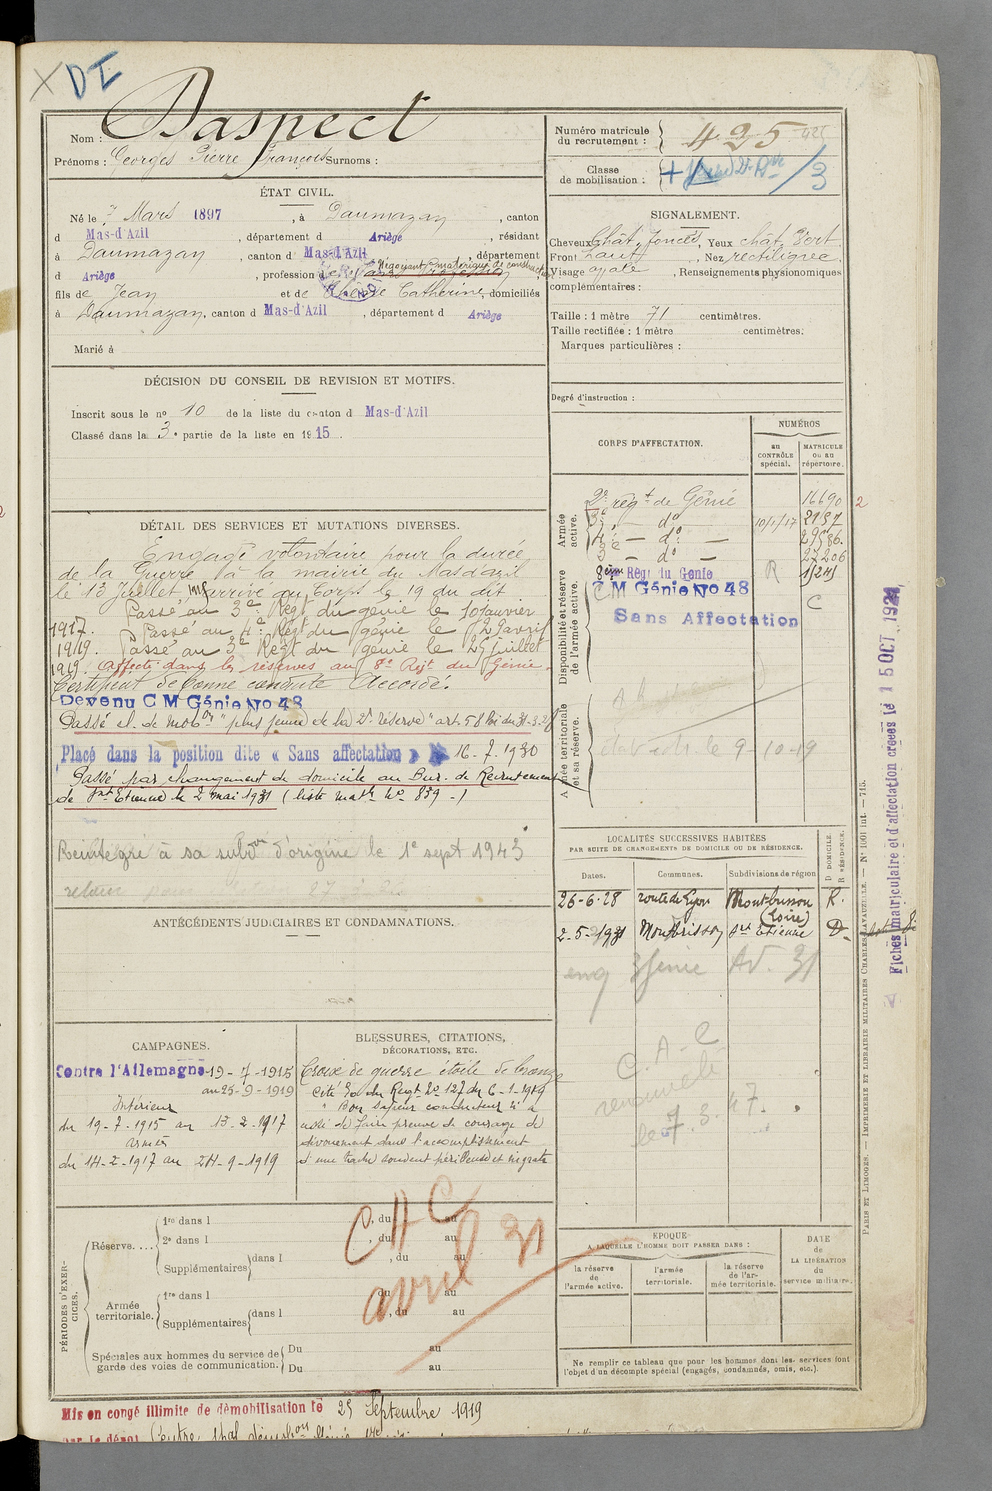 X DI
Nom : Daspect
Prénoms : Georges Pierre François Surnoms :
ÉTAT CIVIL.
Né le 7 Mars 1897, à Daumazan, canton
d Mas-d'Azil, département d Ariège, résidant
à Daumazan, canton d Mas-d'Azil, département
d Ariège, profession de Négociant en matériaux de construction
fils de Jean et de Catherine, domiciliés
à Daumazan, canton d Mas-d'Azil, département d Ariège
Marié à
DÉCISION DU CONSEIL DE REVISION ET MOTIFS.
Inscrit sous le no 10 de la liste du canton d Mas-d'Azil
Classé dans la 3e partie de la liste en 1915.
DÉTAIL DES SERVICES ET MUTATIONS DIVERSES.
Engagé volontaire pour la durée
de la Guerre à la mairie du Mas d'azil
le 13 Juillet 1915 arrivé au Corps le 19 du dit
Passé au 3e Régt du génie le 10 Janvier
1917. Passé au 4e Régt du génie le 29 avril
1919. Passé au 3e Régt du génie le 25 juillet
1919. Affecté dans les réserves au 8e Rgt du Génie.
Certificat de bonne conduite Accordé.
Devenu C M Génie No 48
Passé cl. de mobon "plus jeune de la 2e réserve" art. 58 loi du 31-3-28
Placé dans la position dite « Sans affectation » 16-7-1930
Passé par changement de domicile au Bur. de Recrutement
de St Etienne le 2 mai 1931 (liste matle No 839-)
Réintégré à sa subdon d'origine le 1e sept 1943
ANTÉCÉDENTS JUDICIAIRES ET CONDAMNATIONS.
CAMPAGNES.
Contre l'Allemagne 19-7-1915
au 25-9-1919
Intérieur
du 19-7-1915 au 13-2-1917
armées
du 14-2-1917 au 24-9-1919
BLESSURES, CITATIONS,
DÉCORATIONS, ETC.
Croix de guerre étoile de bronze
Cité à du Regt No 127 du 6-1-1919
"Bon Sapeur conducteur a
de faire preuve de courage de
dévouement dans l'accomplissement
d'une tache souvent périlleuse et ingrate
PÉRIODES D'EXERCICES.
Réserve....
1re dans l , du au
2e dans l , du au
Supplémentaires dans l , du au
Armée territoriale.
1re dans l , du au
Supplémentaires dans l , du au
Spéciales aux hommes du service de garde des voies de communication.
Du au
Du au
CAC
avril 31
Mis en congé illimité de démobilisation le 25 Septembre 1919
Numéro matricule
du recrutement : 425
Classe
de mobilisation : /3
SIGNALEMENT.
Cheveux Chât. foncés, Yeux chât. Vert
Front haut, Nez rectiligne,
Visage ovale, Renseignements physionomiques
complémentaires :
Taille : 1 mètre 71 centimètres.
Taille rectifiée : 1 mètre centimètres.
Marques particulières :
Degré d'instruction :
CORPS D'AFFECTATION.
NUMÉROS
au CONTRÔLE spécial.
MATRICULE ou au répertoire.
Armée active.
2e régt de Génie 16690 2
3e — do — 10/1/17 2197
4e — do — 29586.
3e — do — 27206
Disponibilité et réserve de l'armée active.
8ème Régt du Génie R
C M Génie No 48 C
Sans Affectation
Armée territoriale et sa réserve.
le 9-10-19
LOCALITÉS SUCCESSIVES HABITÉES
PAR SUITE DE CHANGEMENTS DE DOMICILE OU DE RÉSIDENCE.
Dates. Communes. Subdivisions de région D DOMICILE. R RÉSIDENCE.
26-6-28 route de Lyon Montbrison (Loire) R.
2-5-1931 Montbrison St Etienne D.
3 Génie Av. 31
C.A.C
renouvelé
le 7.3.47.
ÉPOQUE
A LAQUELLE L'HOMME DOIT PASSER DANS :
la réserve de l'armée active.
l'armée territoriale.
la réserve de l'armée territoriale.
DATE de LA LIBÉRATION du service militaire.
Ne remplir ce tableau que pour les hommes dont les services font
l'objet d'un décompte spécial (engagés, condamnés, omis, etc.).
Fiches matriculaire et d'affectation créées le 15 OCT. 1924
PARIS ET LIMOGES. — IMPRIMERIE ET LIBRAIRIE MILITAIRES CHARLES-LAVAUZELLE. — No 1001 int. — 715.